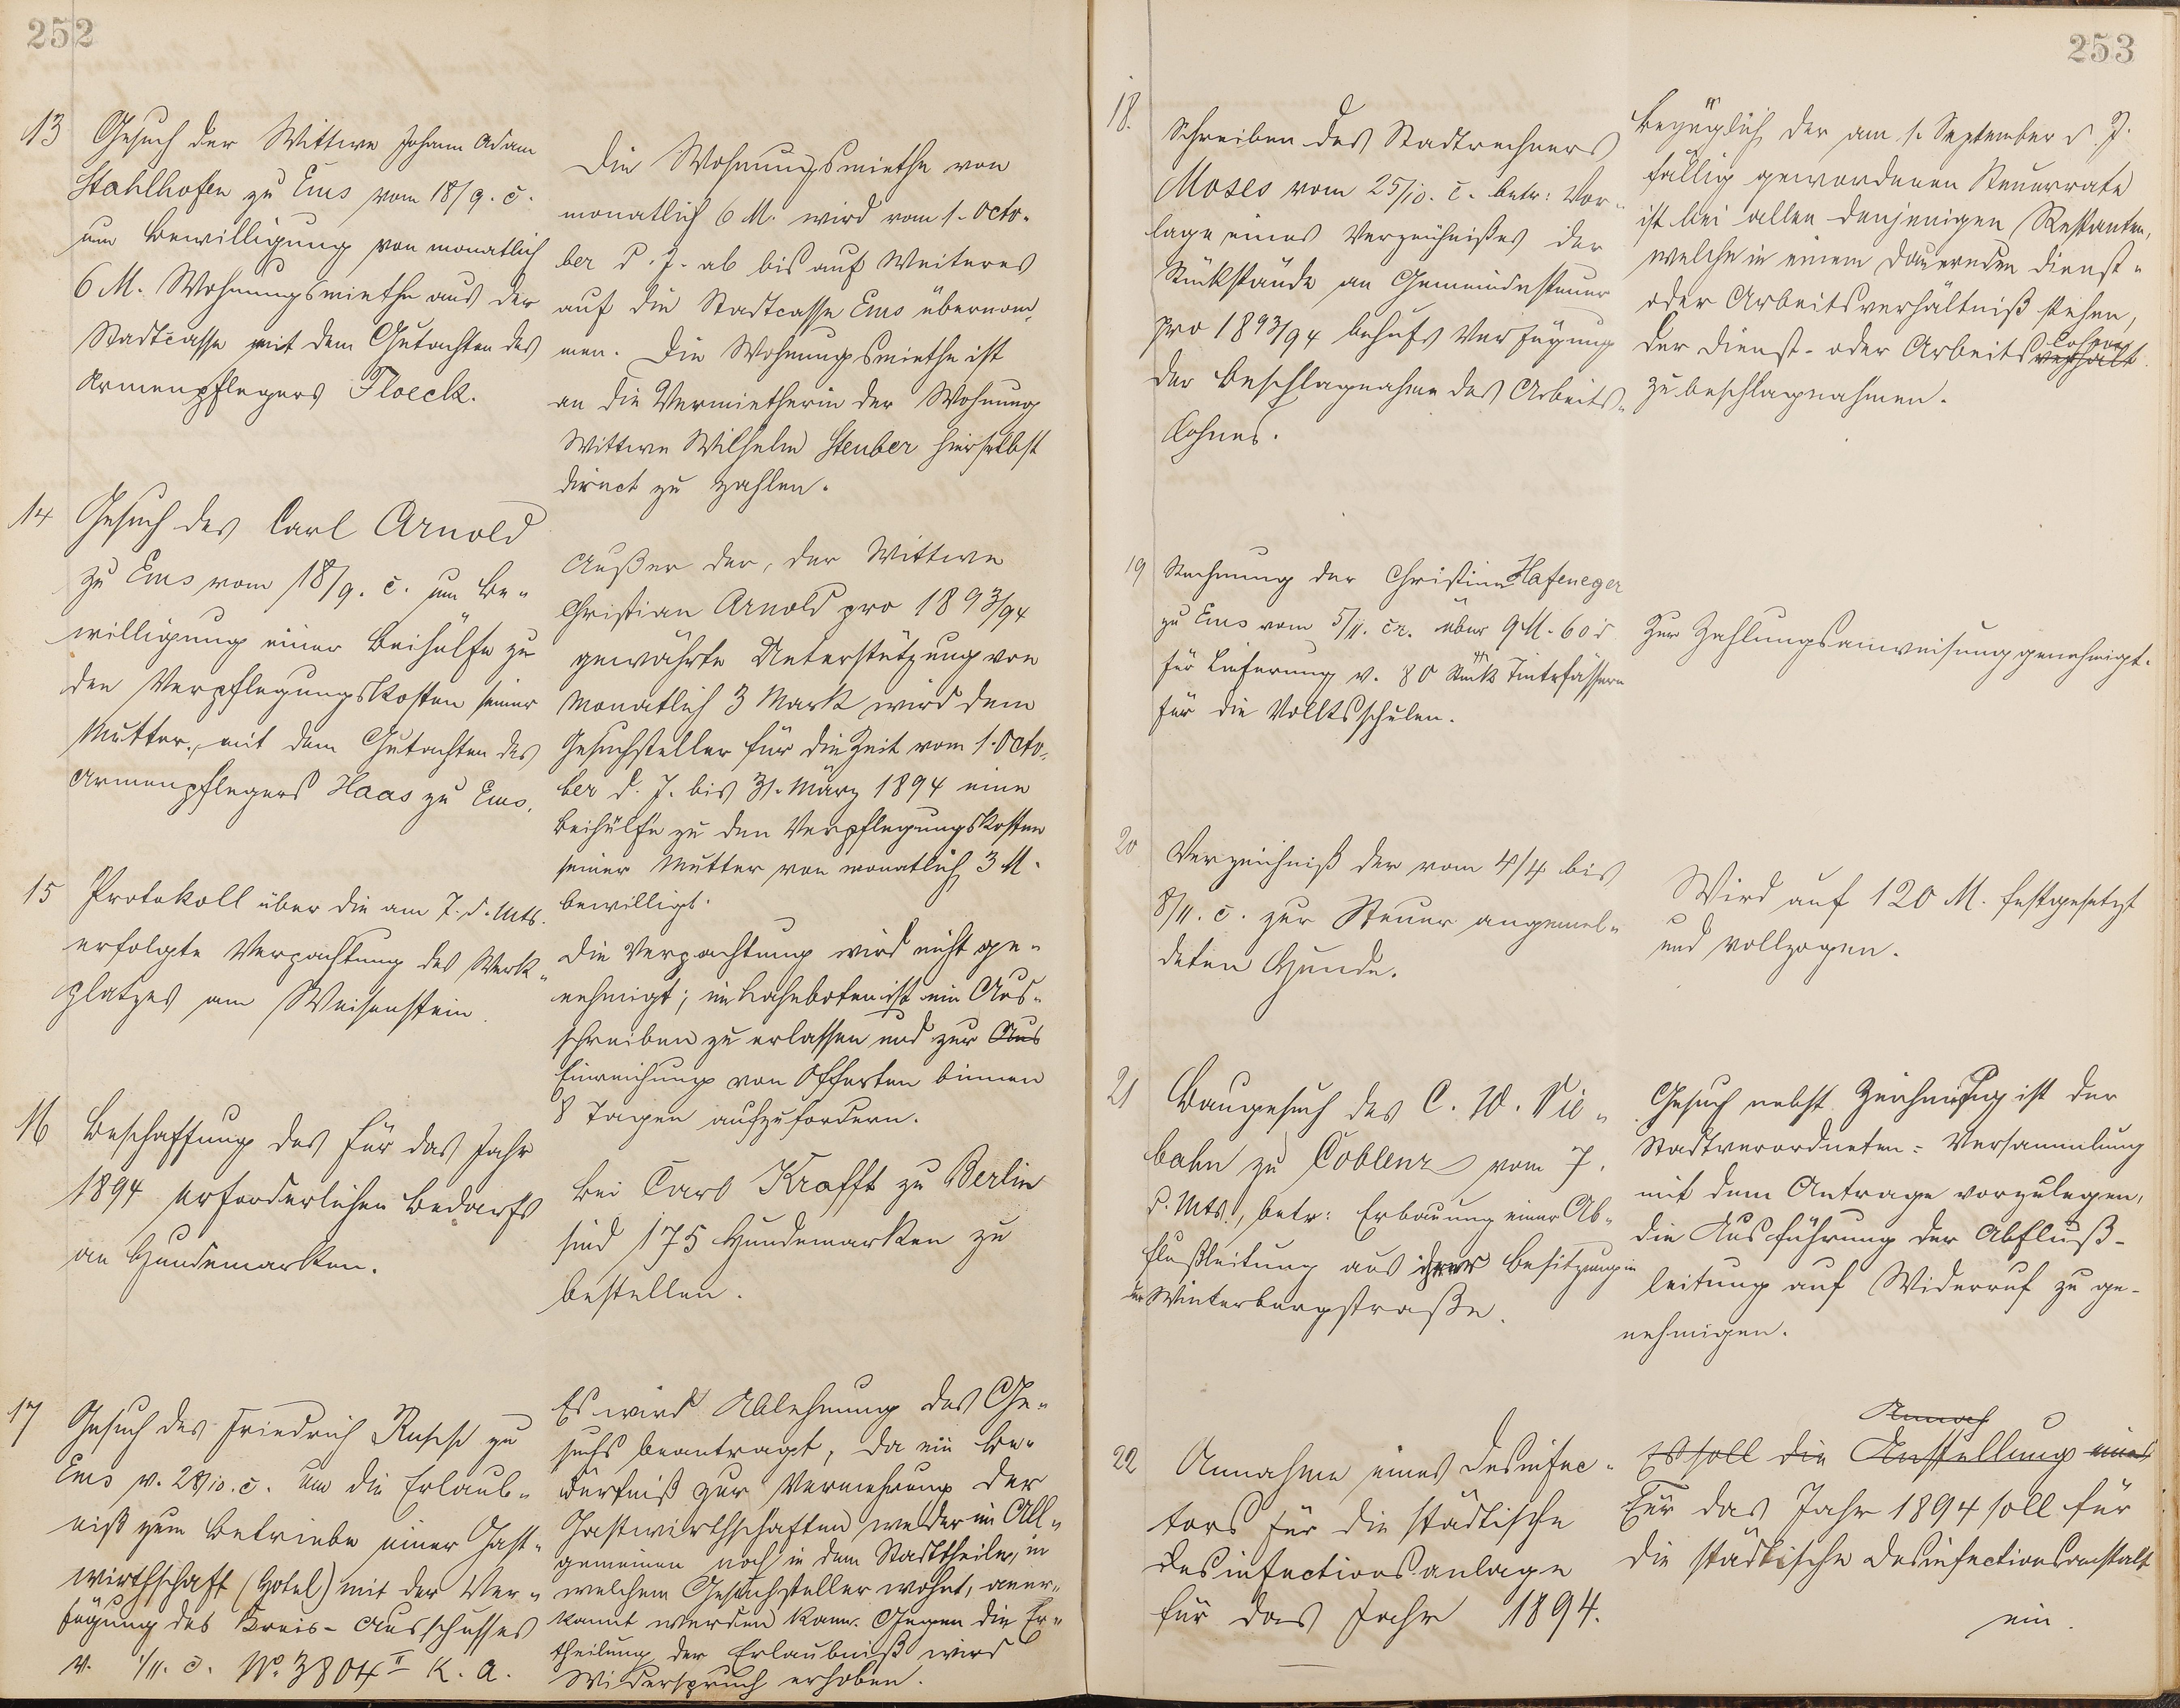 252
13 Gesuch der Wittwe Johann Adam
Stahlhofen zu Ems vom 18/9. c.
um Bewilligung von monatlich
6 M. Wohnungsmiethe aus der
Stadtcasse mit dem Gutachten des
Armenpflegers Floeck.
Die Wohnungsmiethe von
monatlich 6 M. wird vom 1. Octo-
ber d. J. ab bis auf Weiteres
auf die Stadtcasse Ems übernom-
men. Die Wohnungsmiethe ist
an die Vermietherin der Wohnung
Wittwe Wilhelm Steuber hierselbst
direct zu zahlen.
14 Gesuch des Carl Arnold
zu Ems vom 18/9. c. um Be-
willigung einer Beihülfe zu
den Verpflegungskosten seiner
Mutter, mit dem Gutachten des
Armenpflegers Haas zu Ems.
Außer der, der Wittwe
Christian Arnold pro 1893/94
gewährte Unterstützung von
monatlich 3 Mark wird dem
Gesuchsteller für die Zeit vom 1. Octo-
ber d. J. bis 31. März 1894 eine
Beihülfe zu den Verpflegungskosten
seiner Mutter von monatlich 3 M.
bewilligt.
15 Protokoll über die am 7. d. Mts.
erfolgte Verpachtung des Werk-
platzes am Weisenstein.
Die Verpachtung wird nicht ge-
nehmigt; im Lahnboten ist ein Aus-
schreiben zu erlassen und zur Aus
Einreichung von Offerten binnen
8 Tagen aufzufordern.
16 Beschaffung des für das Jahr
1894 erforderlichen Bedarfs
an Hundemarken.
Bei Carl Krafft zu Berlin
sind 175 Hundemarken zu
bestellen.
17 Gesuch des Friedrich Rupp zu
Ems v. 28/10. c. um die Erlaub-
niß zum Betriebe einer Gast-
wirthschaft (Hotel) mit der Ver-
fügung des Kreis-Ausschusses
v. 1/11. c. No. 3804 II K. A.
Es wird Ablehnung des Ge-
suchs beantragt, da ein Be-
dürfniß zur Vermehrung der
Gastwirthschaften weder im All-
gemeinen noch in dem Stadttheile, in
welchem Gesuchsteller wohnt, aner-
kannt werden kann. Gegen die Er-
theilung der Erlaubniß wird
Widerspruch erhoben.
253
18. Schreiben des Stadtrechners
Moses vom 25/10. c. betr: Vor-
lage eines Verzeichnißes der
Rückstände an Gemeindesteuer
pro 1893/94 behufs Verfügung
der Beschlagnahme des Arbeits-
lohnes.
Bezüglich der am 1. September d. J.
fällig gewordenen Steuerrate
ist bei allen denjenigen Restanten,
welche in einem dauernden Dienst-
oder Arbeitsverhältniß stehen,
Lohn
der Dienst- oder Arbeitsverhält
zu beschlagnahmen.
19 Rechnung der Christine Hafeneger
zu Ems vom 5/11. cr. über 9 M. 60 d
für Lieferung v. 80 Stück Tintefässern
für die Volksschulen.
Zur Zahlungsanweisung genehmigt.
20 Verzeichniß der vom 4/4 bis
8/11. c. zur Steuer angemel-
deten Hunde.
Wird auf 120 M. festgesetzt
und vollzogen.
21 Baugesuch des C. W. Vie-
bahn zu Coblenz vom 7.
d. Mts., betr: Erbauung einer Ab-
flußleitung aus ihrer Besitzung in
der Winterbergstraße.
Gesuch nebst Zeichnung ist der
Stadtverordneten-Versammlung
mit dem Antrage vorzulegen,
die Ausführung der Abfluß-
leitung auf Widerruf zu ge-
nehmigen.
22 Annahme eines Desinfec-
tors für die städtische
Desinfectionsanlage
für das Jahr 1894.
Annah
Es soll die Anstellung eines
Für das Jahr 1894 soll für
die städtische Desinfectionsanstalt
ein